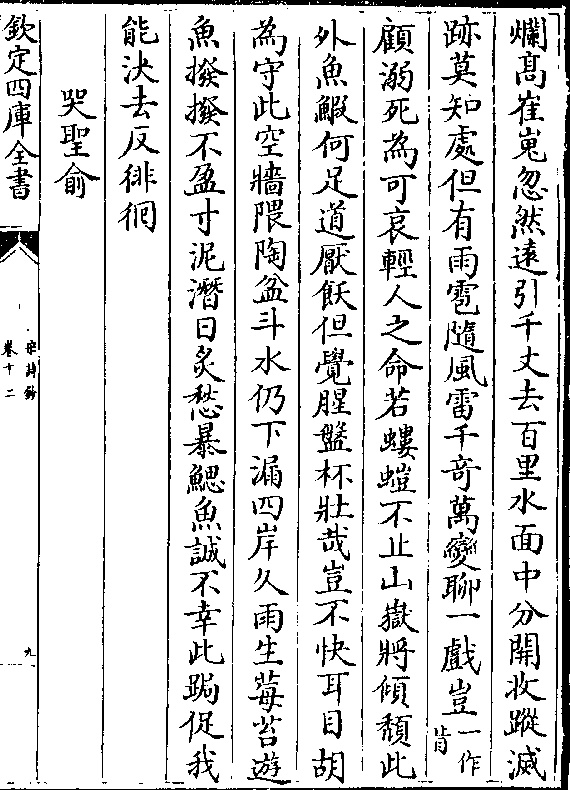 爛髙崔嵬忽然逺引千丈去百里水面中分開收蹤滅
跡莫知處但有雨雹隨風雷千竒萬變聊一戲豈一作肯
顧溺死為可哀輕人之命若螻螘不止山嶽將傾頽此
外魚鰕何足道厭飫但覺腥盤杯壯哉豈不快耳目胡
為守此空牆隈陶盆斗水仍下漏四岸久雨生莓苔遊
魚撥撥不盈寸泥潛日炙愁暴鰓魚誠不幸此跼促我
能決去反徘徊
哭聖俞
欽定四庫全書
宋詩鈔
卷十二
九